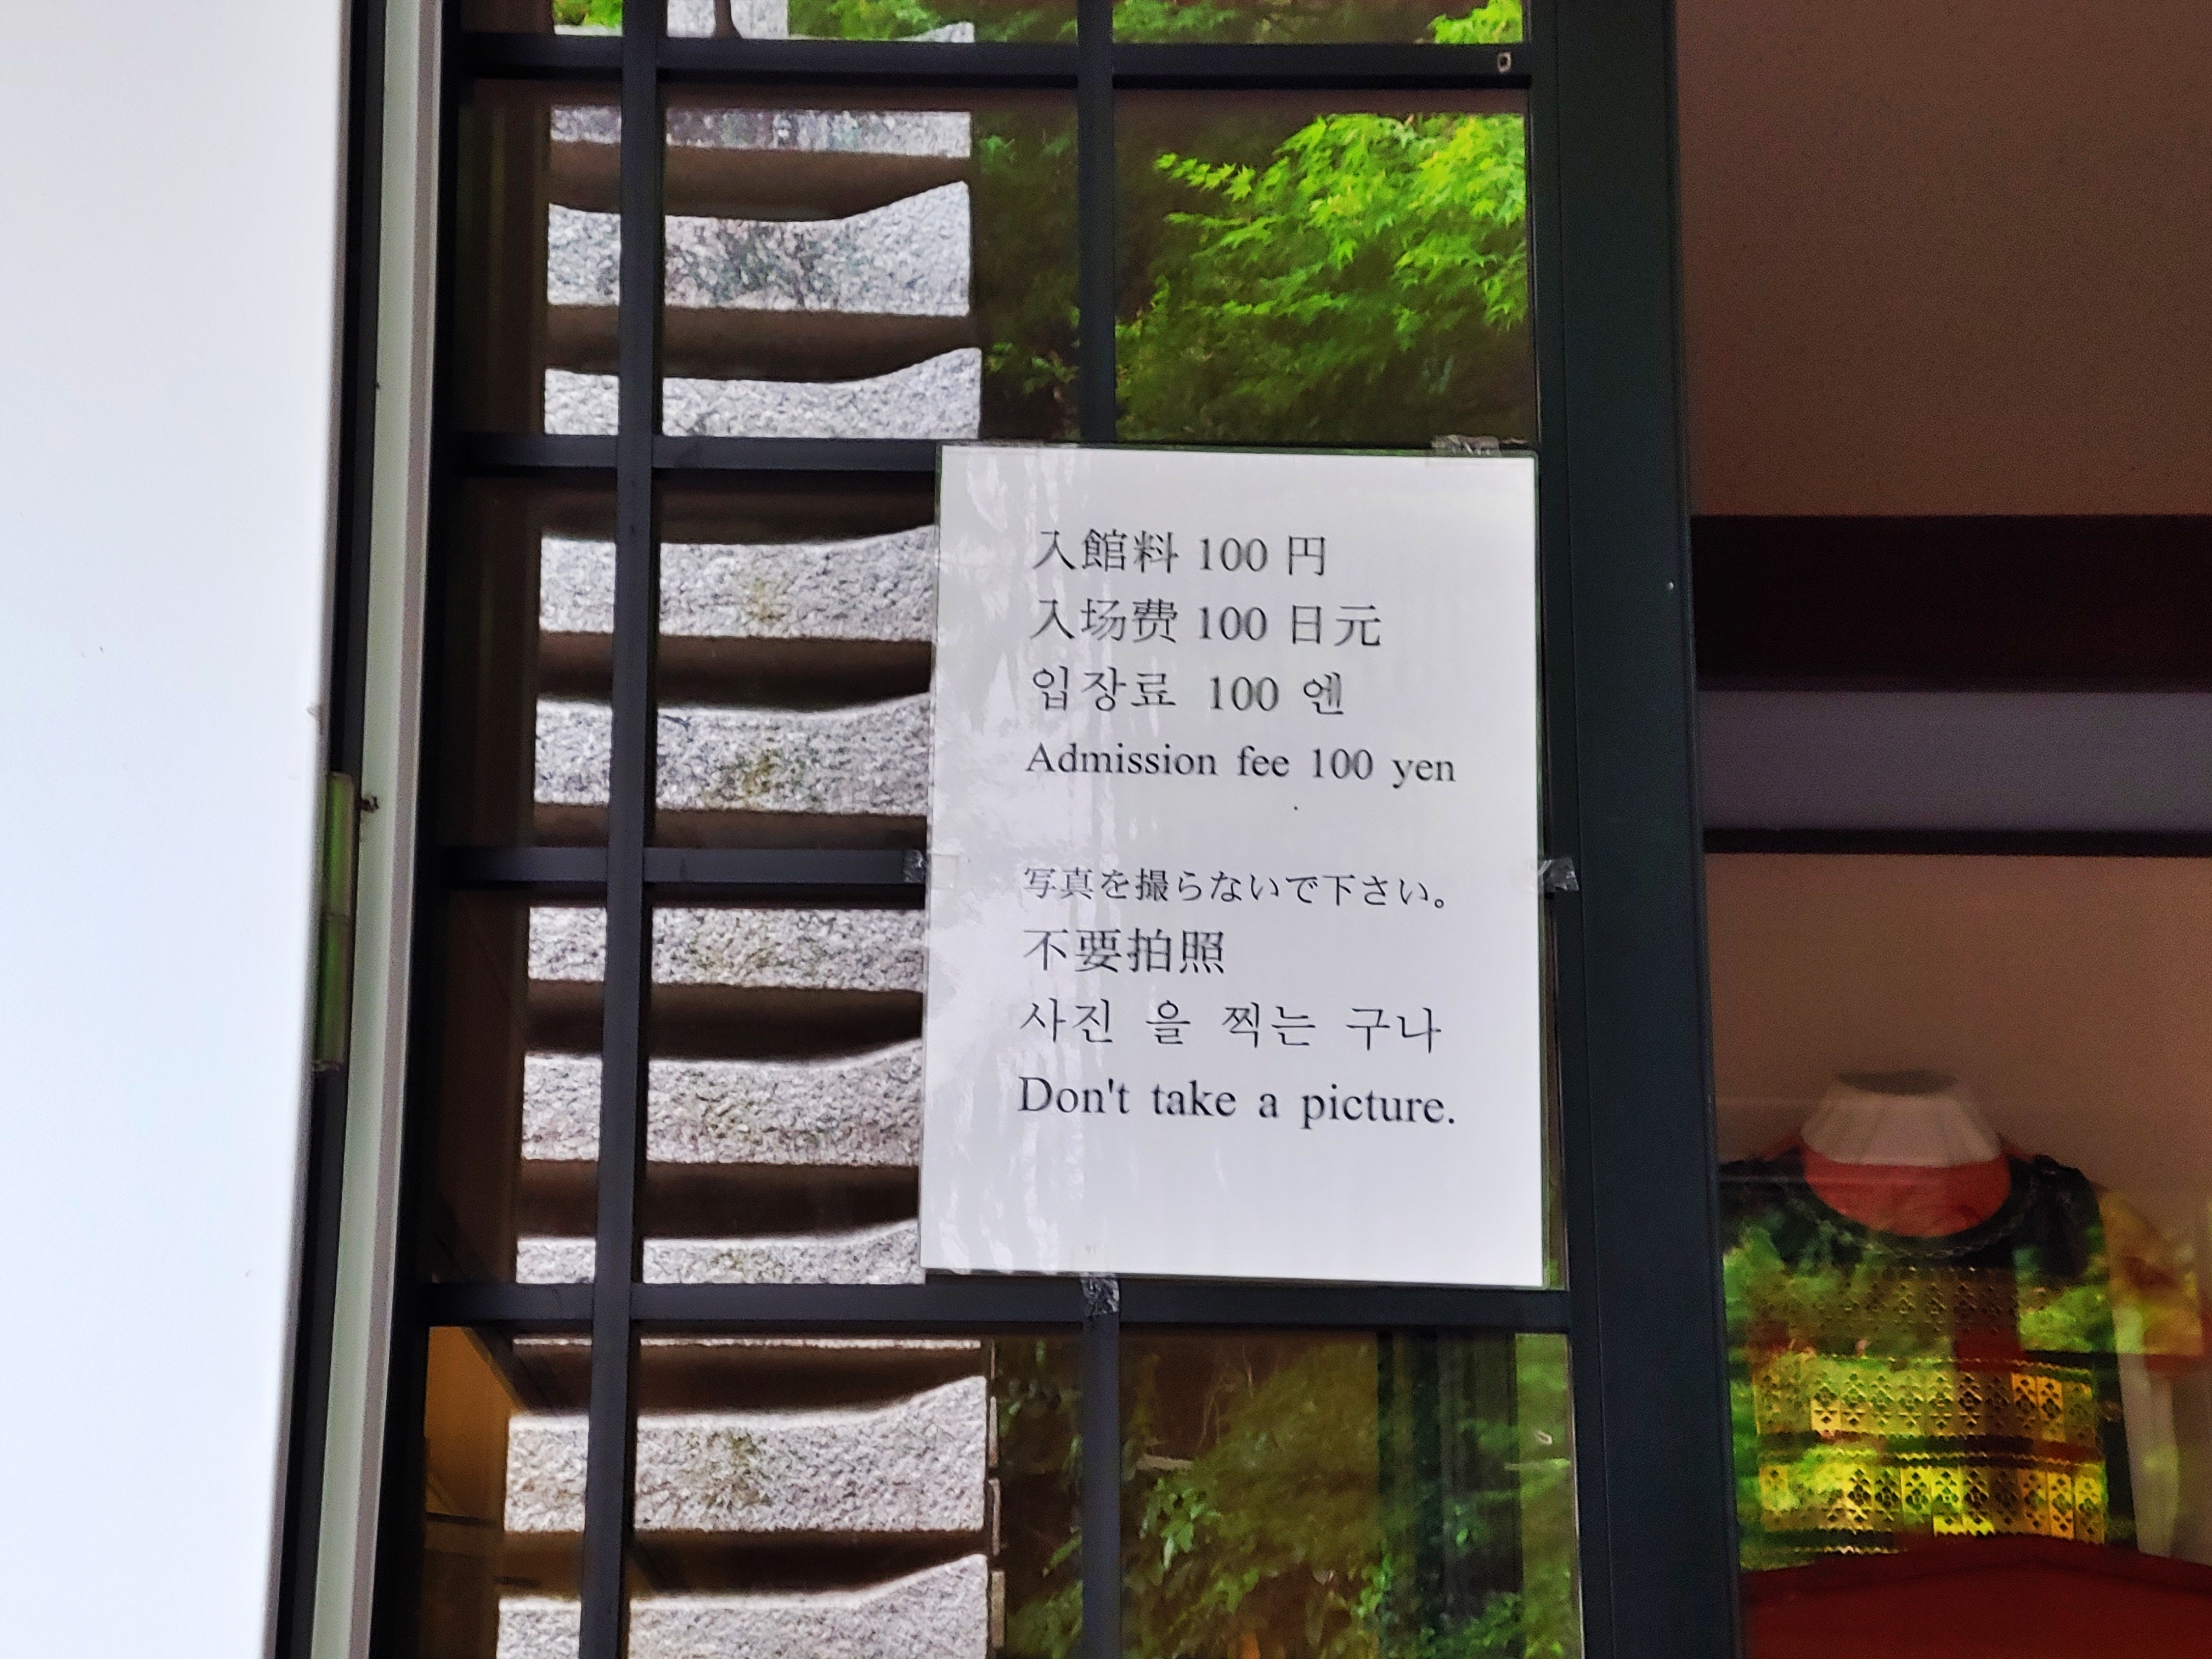 入館料 100 円
入场费 100 日元
입장료 100 엔
Admission fee 100 yen
写真を撮らないで下さい。
不要拍照
사진 을 찍는 구나
Don't take a picture.